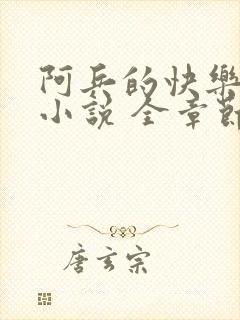 阿兵的快樂
小說 全章節
唐玄宗